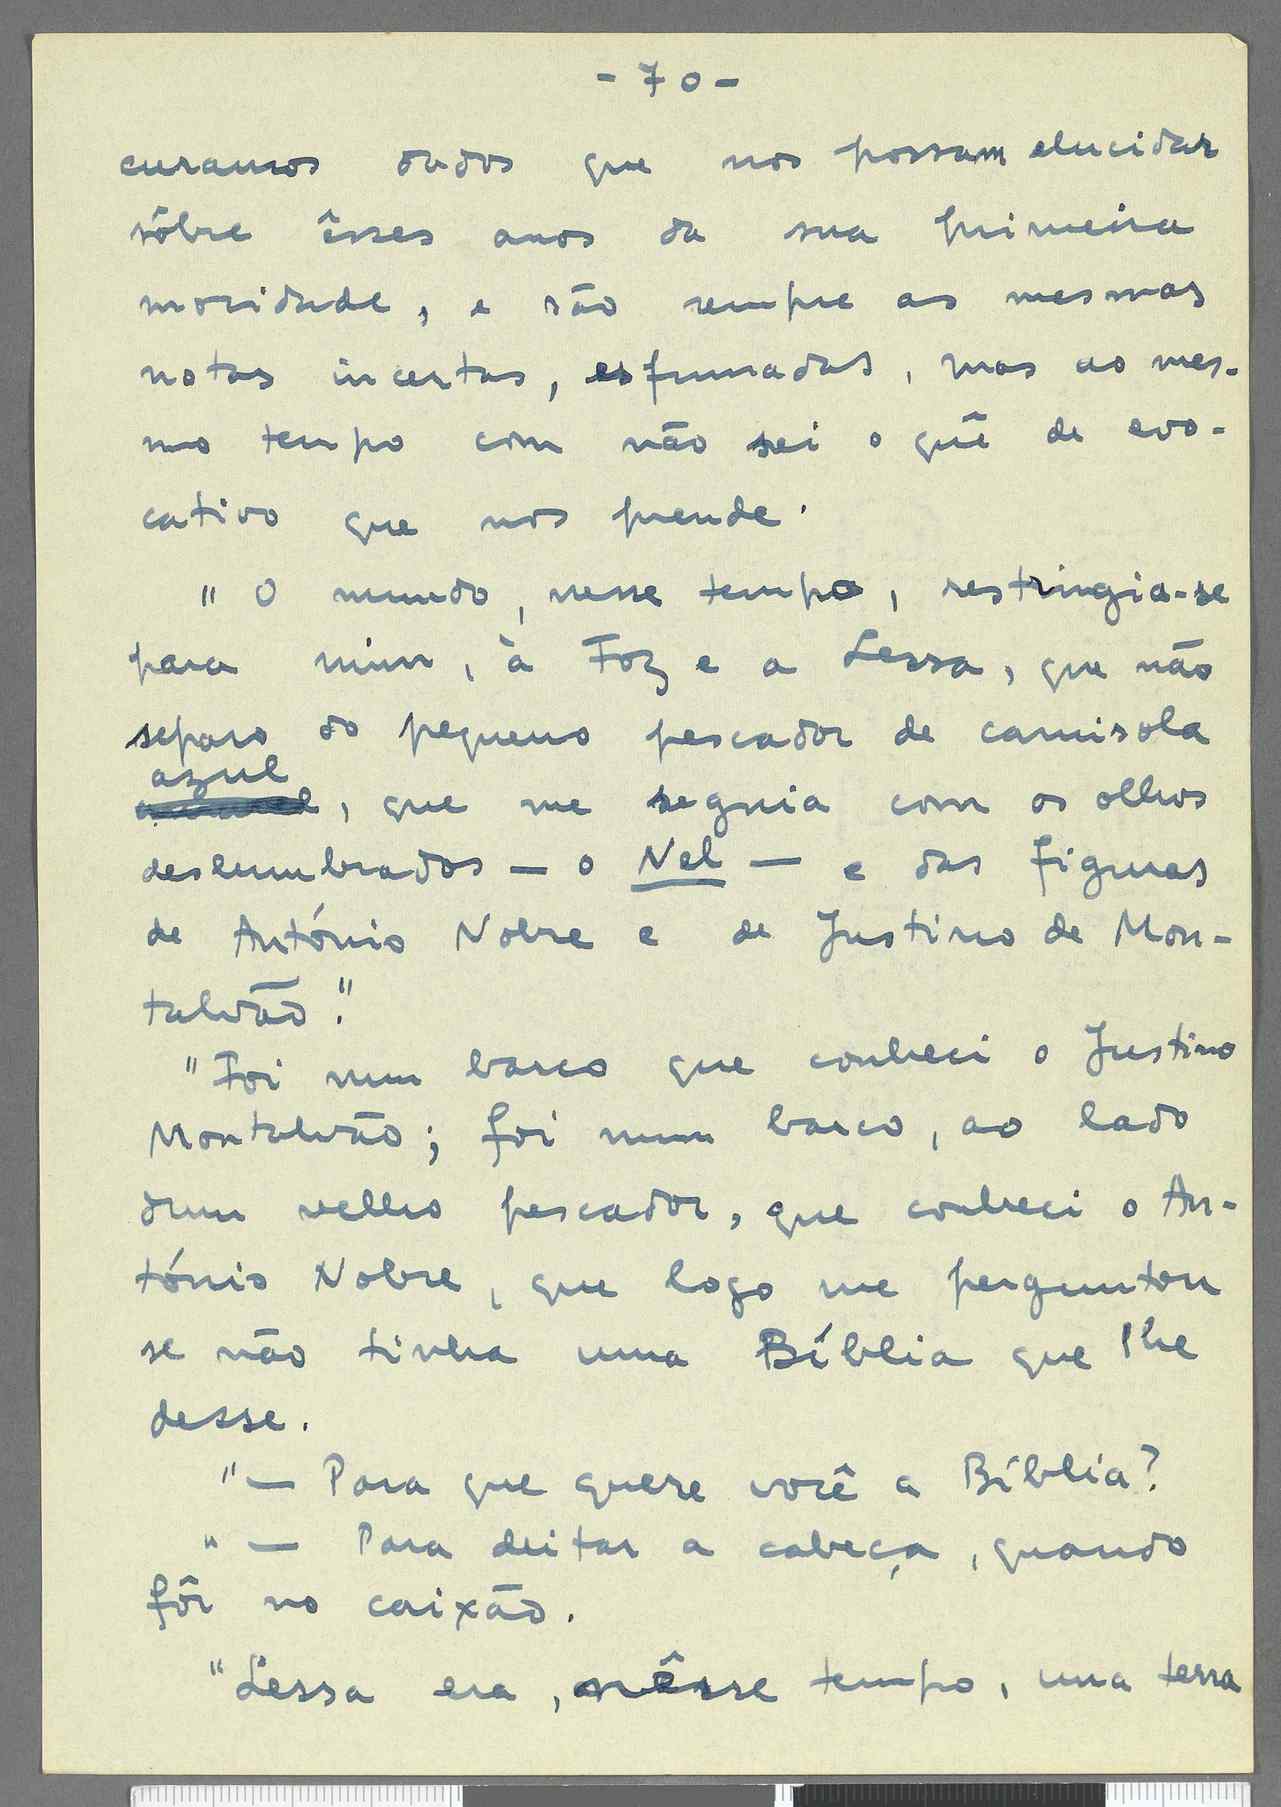 - 70 -
curamos dados que nos possam elucidar
sôbre êsses anos da sua primeira
mocidade, e são sempre as mesmas
notas incertas, esfumadas, mas ao mes-
mo tempo com não sei o quê de evo-
cativo que nos prende.
"O mundo, nesse tempo, restringia-se
para mim, à Foz e a Lessa, que não
separo do pequeno pescador de camisola
azul
, que me seguia com os olhos
deslumbrados — o Nel — e das figuras
de António Nobre e de Justino de Mon-
talvão."
"Foi num barco que conheci o Justino
Montalvão; foi num barco, ao lado
dum velho pescador, que conheci o An-
tónio Nobre, que logo me perguntou
se não tinha uma Bíblia que lhe
desse.
"— Para que quere você a Bíblia?
"— Para deitar a cabeça, quando
fôr no caixão.
"Lessa era, nêsse tempo, uma terra